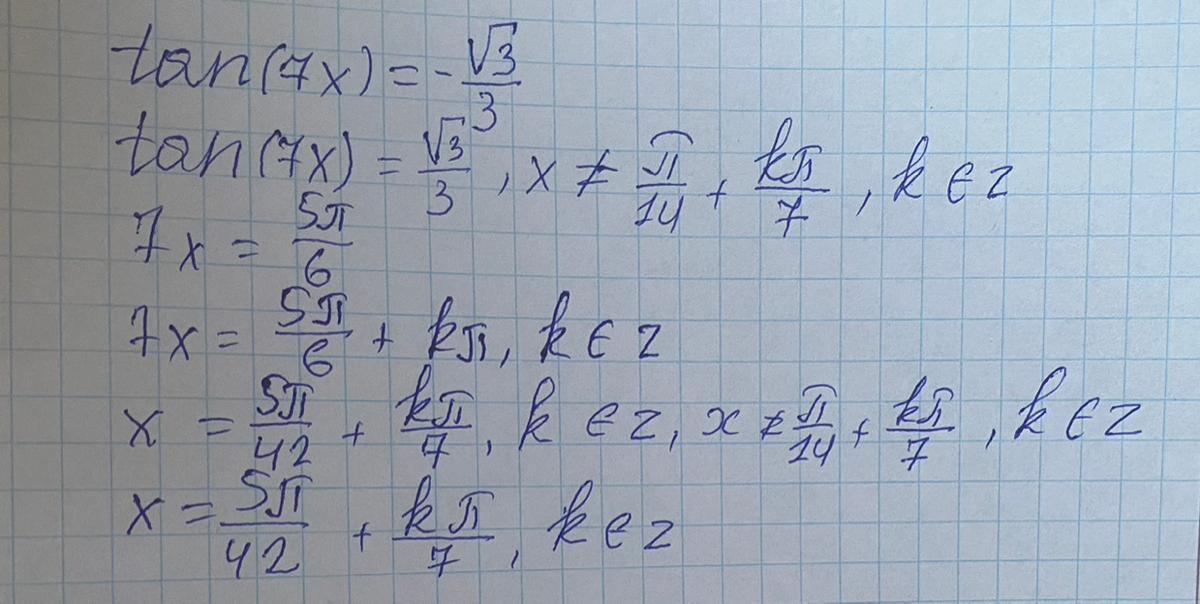 tan(7x) = -√3/3
tan(7x) = √3/3, x ≠ π/14 + kπ/7, k ∈ z
7x = 5π/6
7x = 5π/6 + kπ, k ∈ z
x = 5π/42 + kπ/7, k ∈ z, x ≠ π/14 + kπ/7, k ∈ z
x = 5π/42 + kπ/7, k ∈ z